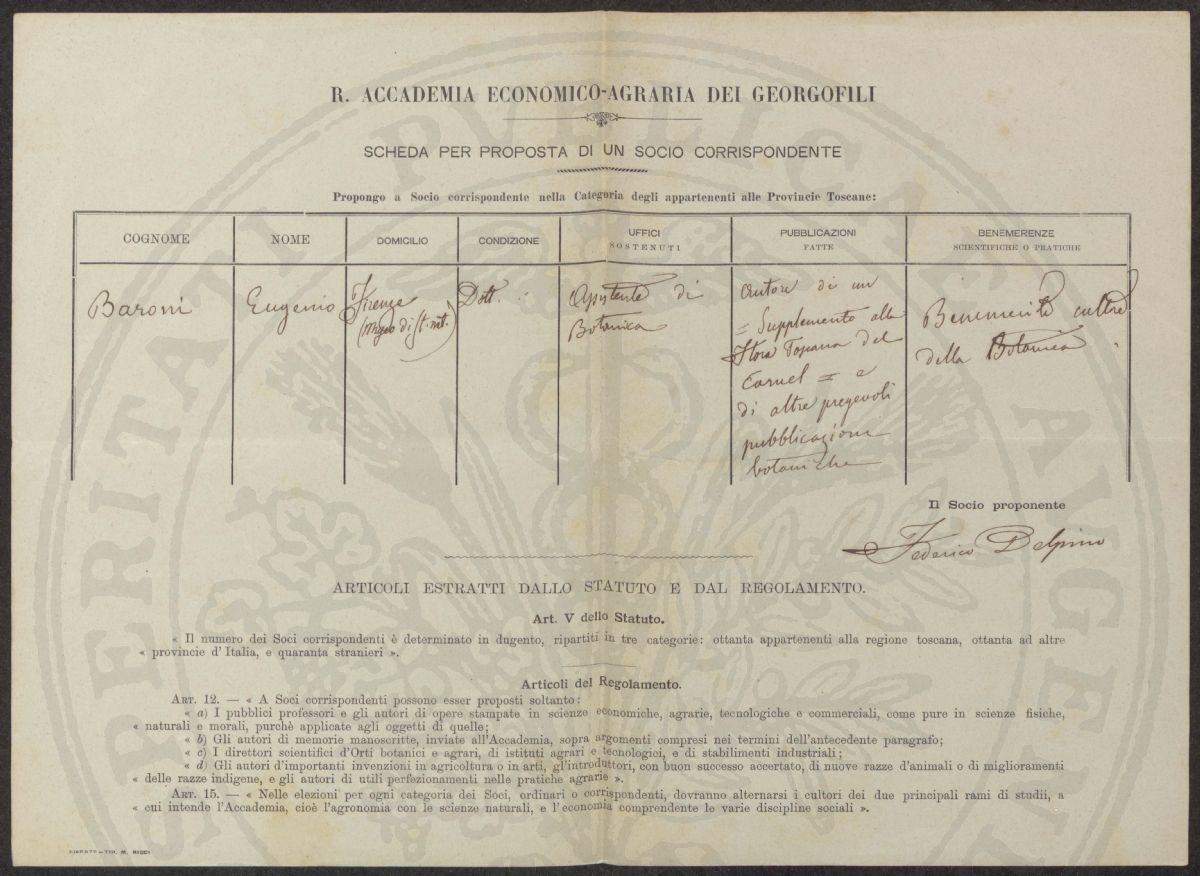 R. ACCADEMIA ECONOMICO-AGRARIA DEI GEORGOFILI
SCHEDA PER PROPOSTA DI UN SOCIO CORRISPONDENTE
Propongo a Socio corrispondente nella Categoria degli appartenenti alle Provincie Toscane:
COGNOME
Baroni
NOME
Eugenio
DOMICILIO
Firenze
(Museo di St. nat.)
CONDIZIONE
Dott.
UFFICI
SOSTENUTI
Assistente di
Botanica
PUBBLICAZIONI
FATTE
autore di un
= Supplemento alla
Flora Toscana del
Caruel = e
di altre pregevoli
pubblicazioni
botaniche
BENEMERENZE
SCIENTIFICHE O PRATICHE
Benemerito cultore
della Botanica.
Il Socio proponente
Federico Delpino
ARTICOLI ESTRATTI DALLO STATUTO E DAL REGOLAMENTO.
Art. V dello Statuto.
« Il numero dei Soci corrispondenti è determinato in dugento, ripartiti in tre categorie: ottanta appartenenti alla regione toscana, ottanta ad altre
« provincie d'Italia, e quaranta stranieri ».
Articoli del Regolamento.
ART. 12. — « A Soci corrispondenti possono esser proposti soltanto:
« a) I pubblici professori e gli autori di opere stampate in scienze economiche, agrarie, tecnologiche e commerciali, come pure in scienze fisiche,
« naturali e morali, purchè applicate agli oggetti di quelle;
« b) Gli autori di memorie manoscritte, inviate all'Accademia, sopra argomenti compresi nei termini dell'antecedente paragrafo;
« c) I direttori scientifici d'Orti botanici e agrari, di istituti agrari e tecnologici, e di stabilimenti industriali;
« d) Gli autori d'importanti invenzioni in agricoltura o in arti, gl'introduttori, con buon successo accertato, di nuove razze d'animali o di miglioramenti
« delle razze indigene, e gli autori di utili perfezionamenti nelle pratiche agrarie ».
ART. 15. — « Nelle elezioni per ogni categoria dei Soci, ordinari o corrispondenti, dovranno alternarsi i cultori dei due principali rami di studii, a
« cui intende l'Accademia, cioè l'agronomia con le scienze naturali, e l'economia comprendente le varie discipline sociali ».
FIRENZE — TIP. M. RICCI